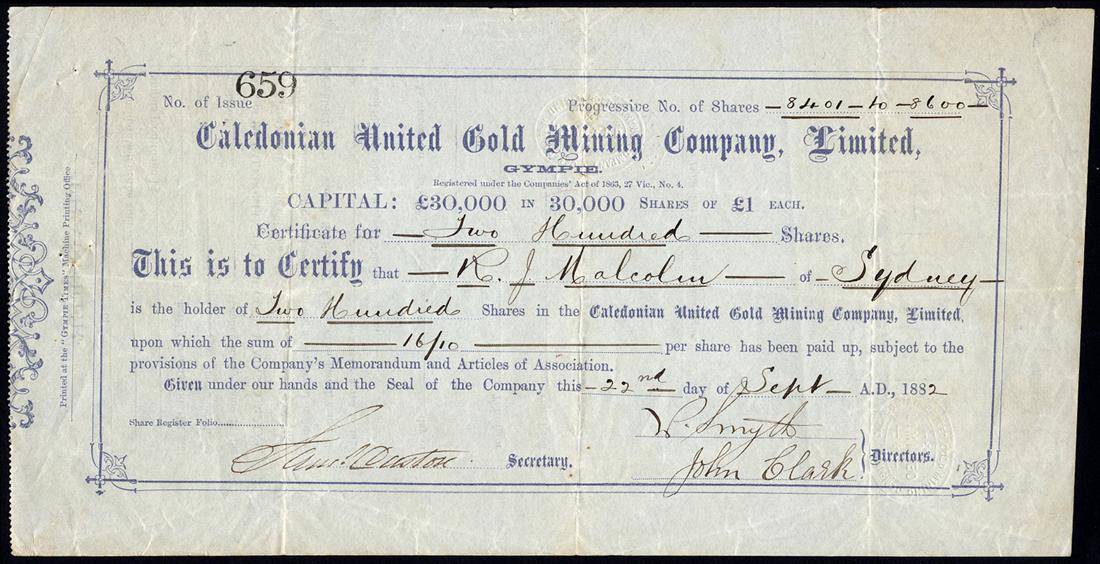 659
No. of Issue
Progressive No. of Shares 8401 to 8600
Caledonian United Gold Mining Company, Limited,
GYMPIE.
Registered under the Companies' Act of 1863, 27 Vic., No. 4.
CAPITAL: £30,000 IN 30,000 SHARES OF £1 EACH.
Certificate for Two Hundred Shares.
This is to Certify that R. J. Malcolm of Sydney
is the holder of Two Hundred Shares in the Caledonian United Gold Mining Company, Limited,
upon which the sum of 16/10 per share has been paid up, subject to the
provisions of the Company's Memorandum and Articles of Association.
Given under our hands and the Seal of the Company this 22nd day of Sept A.D., 1882
Share Register Folo
Secretary.
W. Smyth
John Clark
Directors.
Printed at the "GYMPIE TIMES" Machine Printing Office